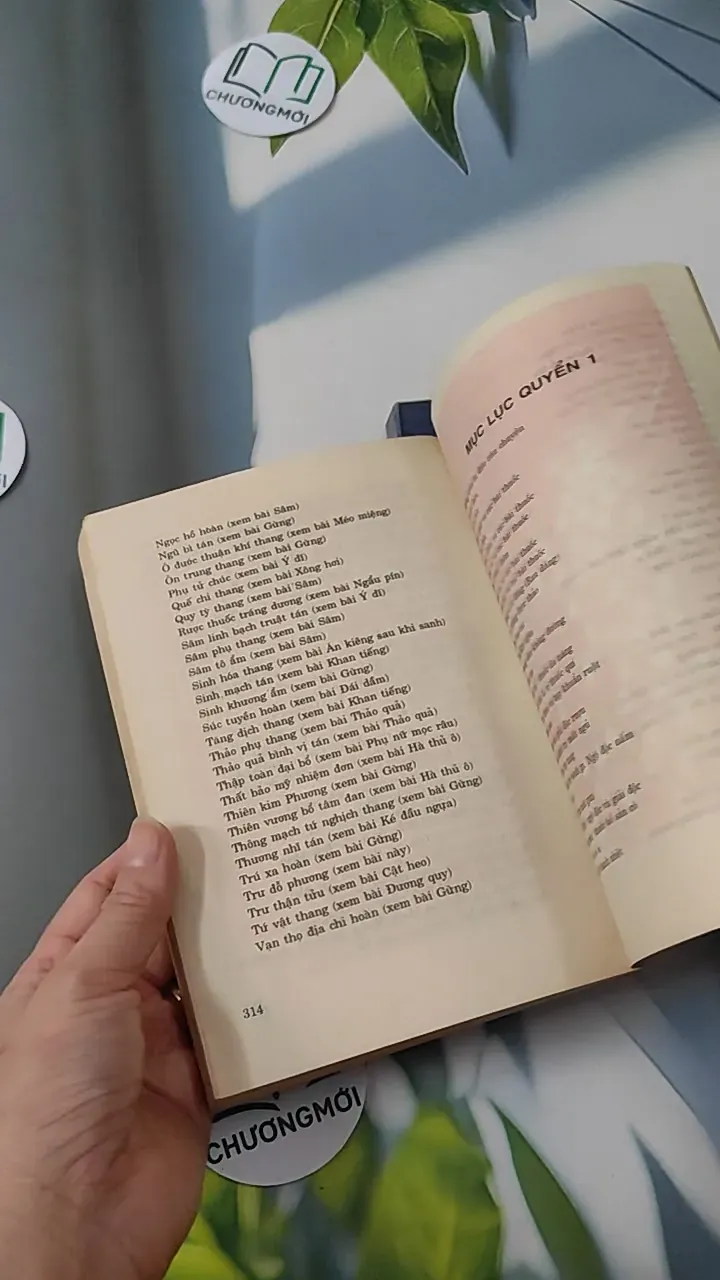 CHƯƠNGMỚI
Ngọc hồ hoàn (xem bài Sâm)
Ngũ bì tán (xem bài Gừng)
Ô dước thuận khí thang (xem bài Méo miệng)
Ôn trung thang (xem bài Gừng)
Phụ tử chúc (xem bài Ý dĩ)
Quế chi thang (xem bài Xông hơi)
Quy tỳ thang (xem bài Sâm)
Rược thuốc tráng dương (xem bài Ngẩu pín)
Sâm linh bạch truật tán (xem bài Ý dĩ)
Sâm phụ thang (xem bài Sâm)
Sâm tô ẩm (xem bài Sâm)
Sinh hóa thang (xem bài Ăn kiêng sau khi sanh)
Sinh mạch tán (xem bài Khan tiếng)
Sinh khương ẩm (xem bài Gừng)
Súc tuyền hoàn (xem bài Đái dầm)
Tăng dịch thang (xem bài Khan tiếng)
Thảo phụ thang (xem bài Thảo quả)
Thảo quả bình vị tán (xem bài Thảo quả)
Thập toàn đại bổ (xem bài Phụ nữ mọc râu)
Thất bảo mỹ nhiệm đơn (xem bài Hà thủ ô)
Thiên kim Phương (xem bài Gừng)
Thiên vương bổ tâm đan (xem bài Hà thủ ô)
Thông mạch tứ nghịch thang (xem bài Gừng)
Thương nhĩ tán (xem bài Ké đầu ngựa)
Trú xa hoàn (xem bài Gừng)
Trư đỗ phương (xem bài này)
Trư thận tửu (xem bài Cật heo)
Tứ vật thang (xem bài Đương quy)
Vạn thọ địa chi hoàn (xem bài Gừng)
314
MỤC LỤC QUYỂN 1
câu chuyện
bài thuốc
bài thuốc
bài thuốc
bài thuốc
bài thuốc
khuẩn ruột
Ngộ độc nấm
và giải độc
CHƯƠNGMỚI